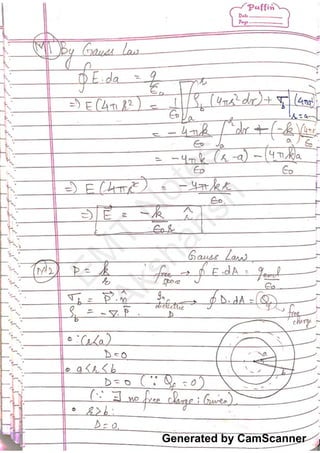 Puffin
Date
Page
M1 By Gauss Law
∮E.da = q/ε₀
⇒ E(4πr²) = 1/ε₀ [∫ₐʳ ρ_b (4πr²dr) + σ_b (4πa²)
r=a
= -4πk/ε₀ ∫ₐʳ dr + (-k/a)(4π
= -4πk/ε₀ (r-a) - (4πk)a/ε₀
⇒ E(4πr²) = -4πkr/ε₀
⇒ E = -k/ε₀r r̂
Gauss Law.
M2 P = k/r r̂ free space → ∮E.dA = q_encl/ε₀
σ_b = P.n̂ In dielectric → ∮D.dA = Q_f → free charge
ρ_b = -∇.P D
• (r<a)
D=0
• a<r<b
D=0 (∵ Q_f = 0)
(∵ ∃ no free charge : Given)
• r>b:
D=0.
a
b
EMT Note
Akshansh
Generated by CamScanner